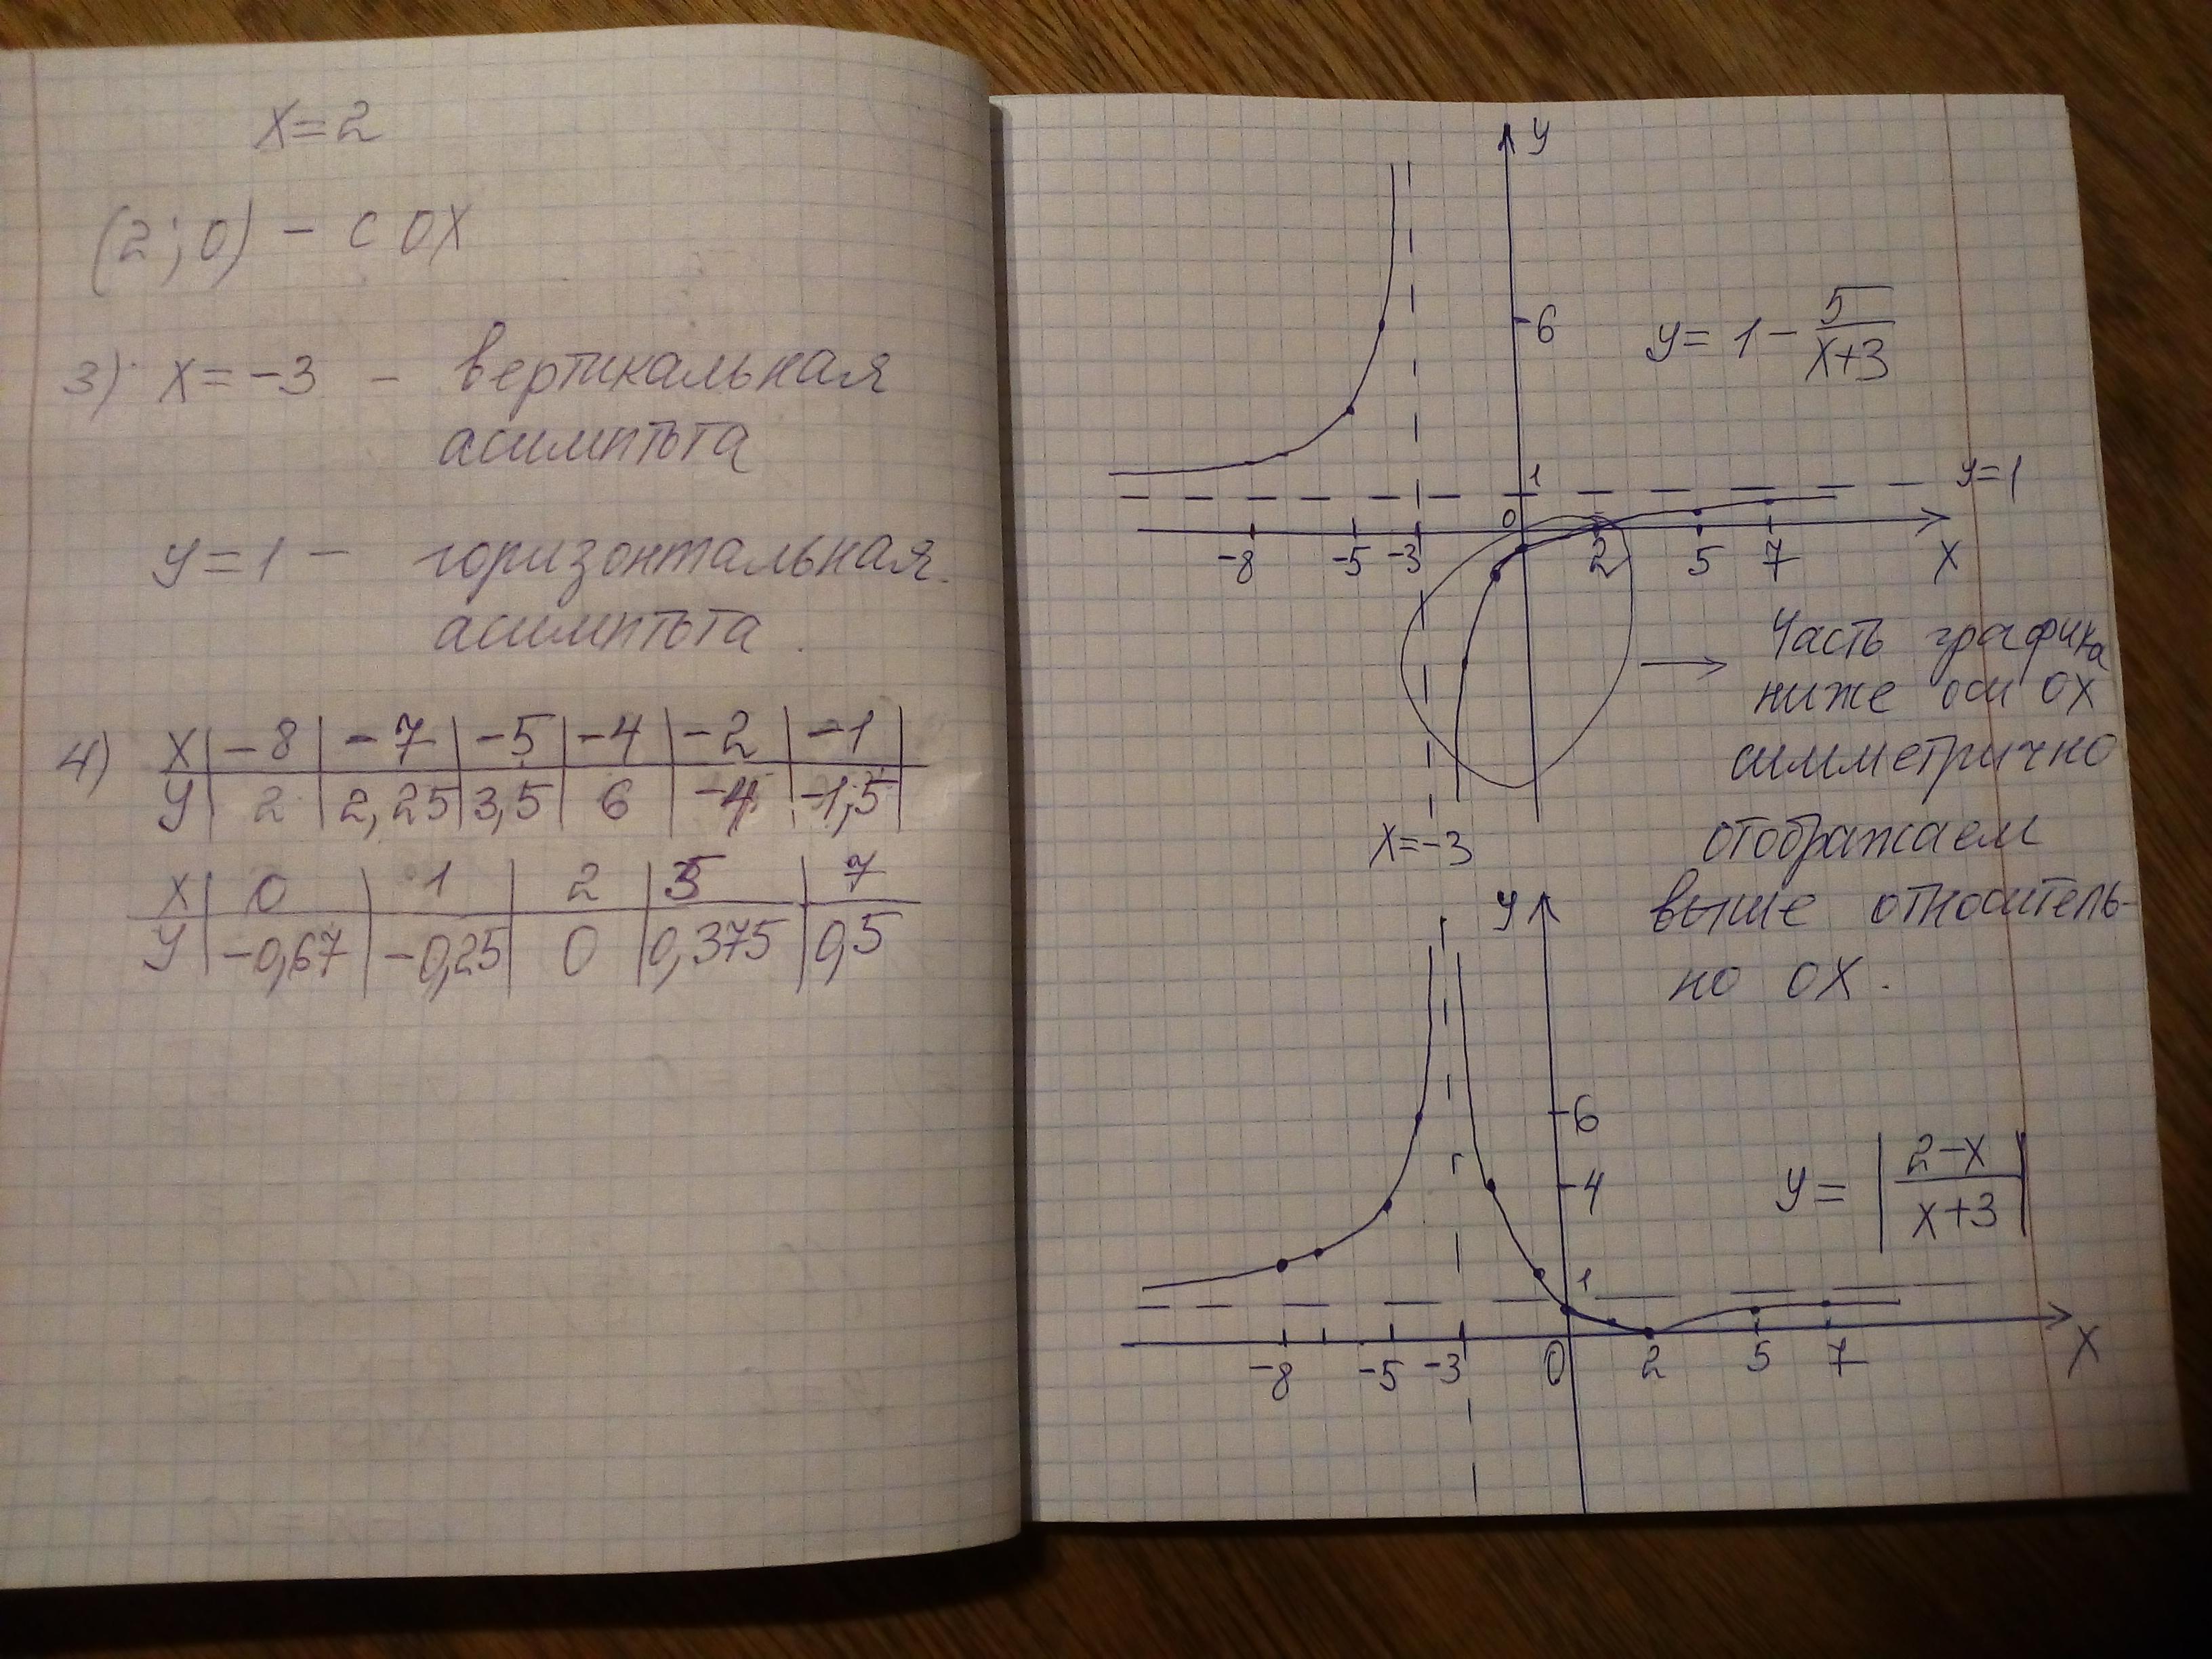 x=2
(2;0) - с OX
3) x=-3 - вертикальная
асимптота
y=1 - горизонтальная
асимптота.
4) x | -8 | -7 | -5 | -4 | -2 | -1
y | 2 | 2,25 | 3,5 | 6 | -4 | -1,5
x | 0 | 1 | 2 | 5 | 7
y | -0,67 | -0,25 | 0 | 0,375 | 0,5
y
6
y = 1 - 5/(x+3)
1
y=1
0
-8 -5 -3 2 5 7 x
x=-3
Часть графика
ниже оси OX
симметрично
отображаем
выше относитель-
но OX.
y
6
4
y = |(2-x)/(x+3)|
1
-8 -5 -3 0 2 5 7 x